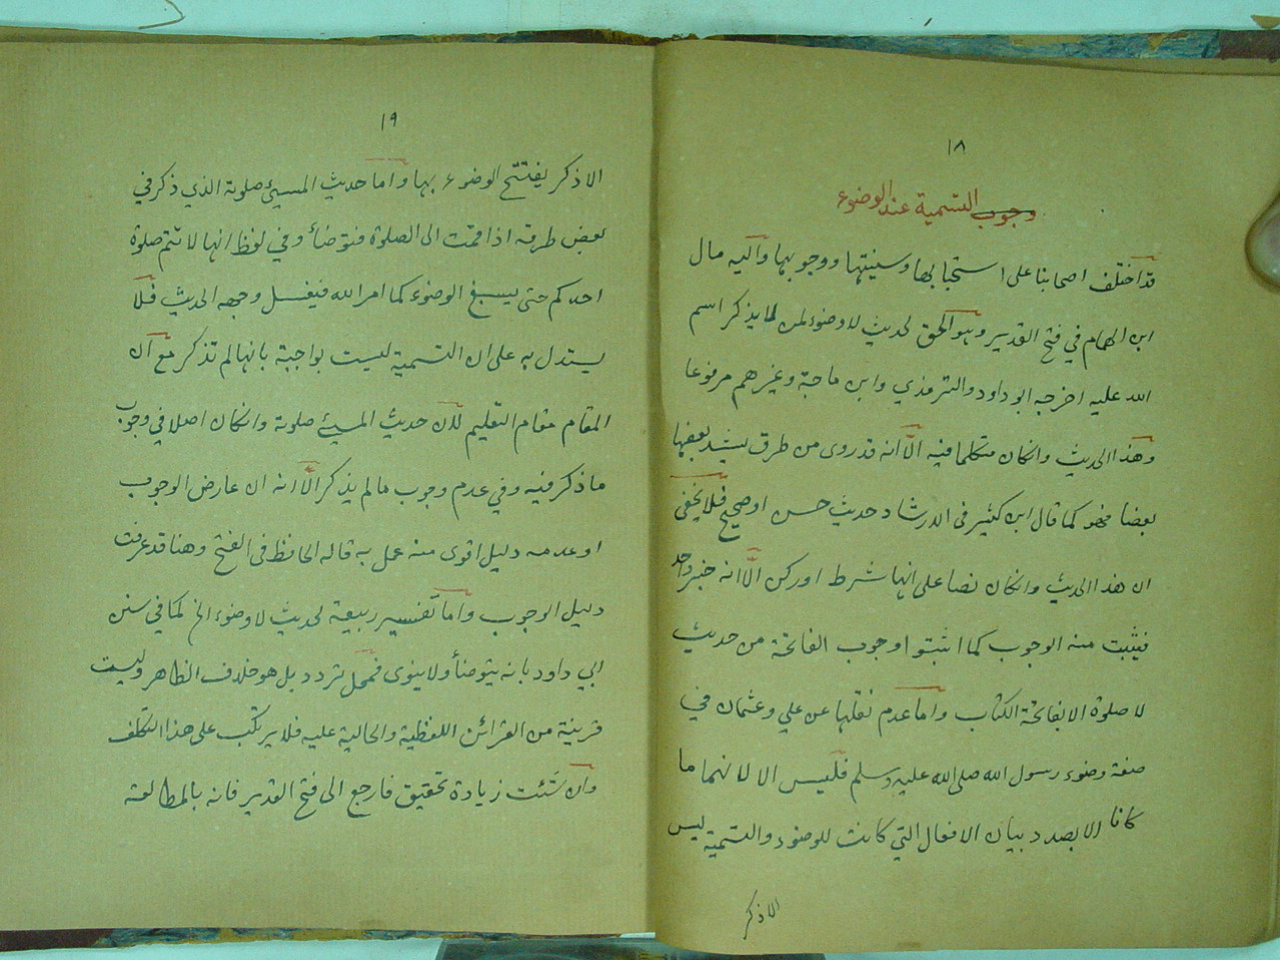 ١٨
وجوب التسمية عند الوضوء
قد اختلف اصحابنا على استحبابها وسنيتها ووجوبها واليه مال
ابن الهمام في فتح القدير وهو الحق لحديث لا وضوء لمن لما يذكر اسم
الله عليه اخرجه ابو داود والترمذي وابن ماجة وغيرهم مرفوعا
وهذا الحديث وانكان متكلما فيه الّا انه قد روى من طرق يشد بعضها
بعضا فهو كما قال ابن كثير في الارشاد حديث حسن او صحيح فلا يخفى
ان هذا الحديث وانكان نصا على انها شرط او ركن الّا انه خبر واحد
فيثبت منه الوجوب كما اثبتوا وجوب الفاتحة من حديث
لا صلوة الا بفاتحة الكتاب واما عدم نقلها عن علي وعثمان في
صفة وضوء رسول الله صلى الله عليه وسلم فليس الا لانهما ما
كانا الا بصدد بيان الافعال التي كانت للوضوء والتسمية ليس
الا ذكر
١٩
الا ذكر يفتتح الوضوء بها واما حديث المسيئ صلوته الذي ذكر في
بعض طرقه اذا قمت الى الصلوة فتوضأ وفي لفظ انها لا تتم صلوة
احدكم حتى يسبغ الوضوء كما امر الله فيغسل وجهه الحديث فلا
يستدل به على ان التسمية ليست بواجبة بانها لم تذكر مع ان
المقام مقام التعليم لان حديث المسيئ صلوته وانكان اصلا في وجوب
ما ذكر فيه وفي عدم وجوب ما لم يذكر الّا انه ان عارض الوجوب
او عدمه دليل اقوى منه عمل به قاله الحافظ في الفتح وهنا قد عرفت
دليل الوجوب واما تفسير ربيعة لحديث لا وضوء الخ لما في سنن
ابي داود بانه يتوضأ ولا ينوى فمحل تردد بل هو خلاف الظاهر وليست
قرينة من القرائن اللفظية والحالية عليه فلا يرتكب على هذا التكلف
وان شئت زيادة تحقيق فارجع الى فتح القدير فانه بالمطالعة